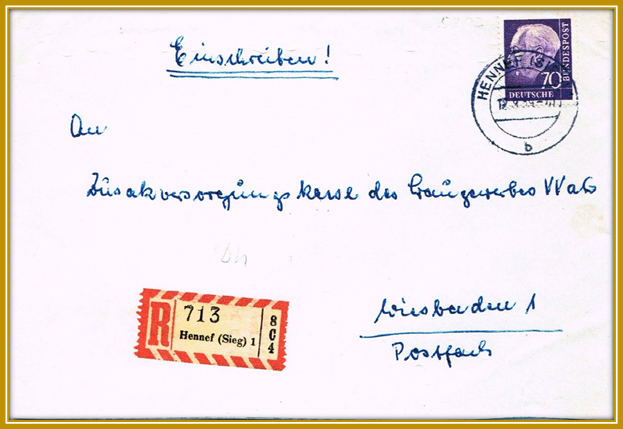 Einschreiben!
70
DEUTSCHE
BUNDESPOST
HENNEF (S
b
An
Zusatzversorgungskasse des Baugewerbes VVaG
R
713
Hennef (Sieg) 1
8
C
4
Wiesbaden 1
Postfach